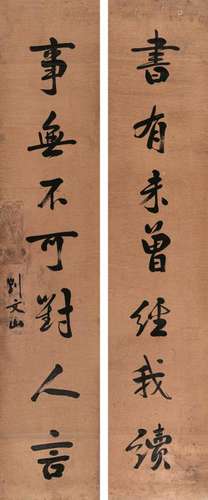 書有未曾經我讀
事無不可對人言
劉文山